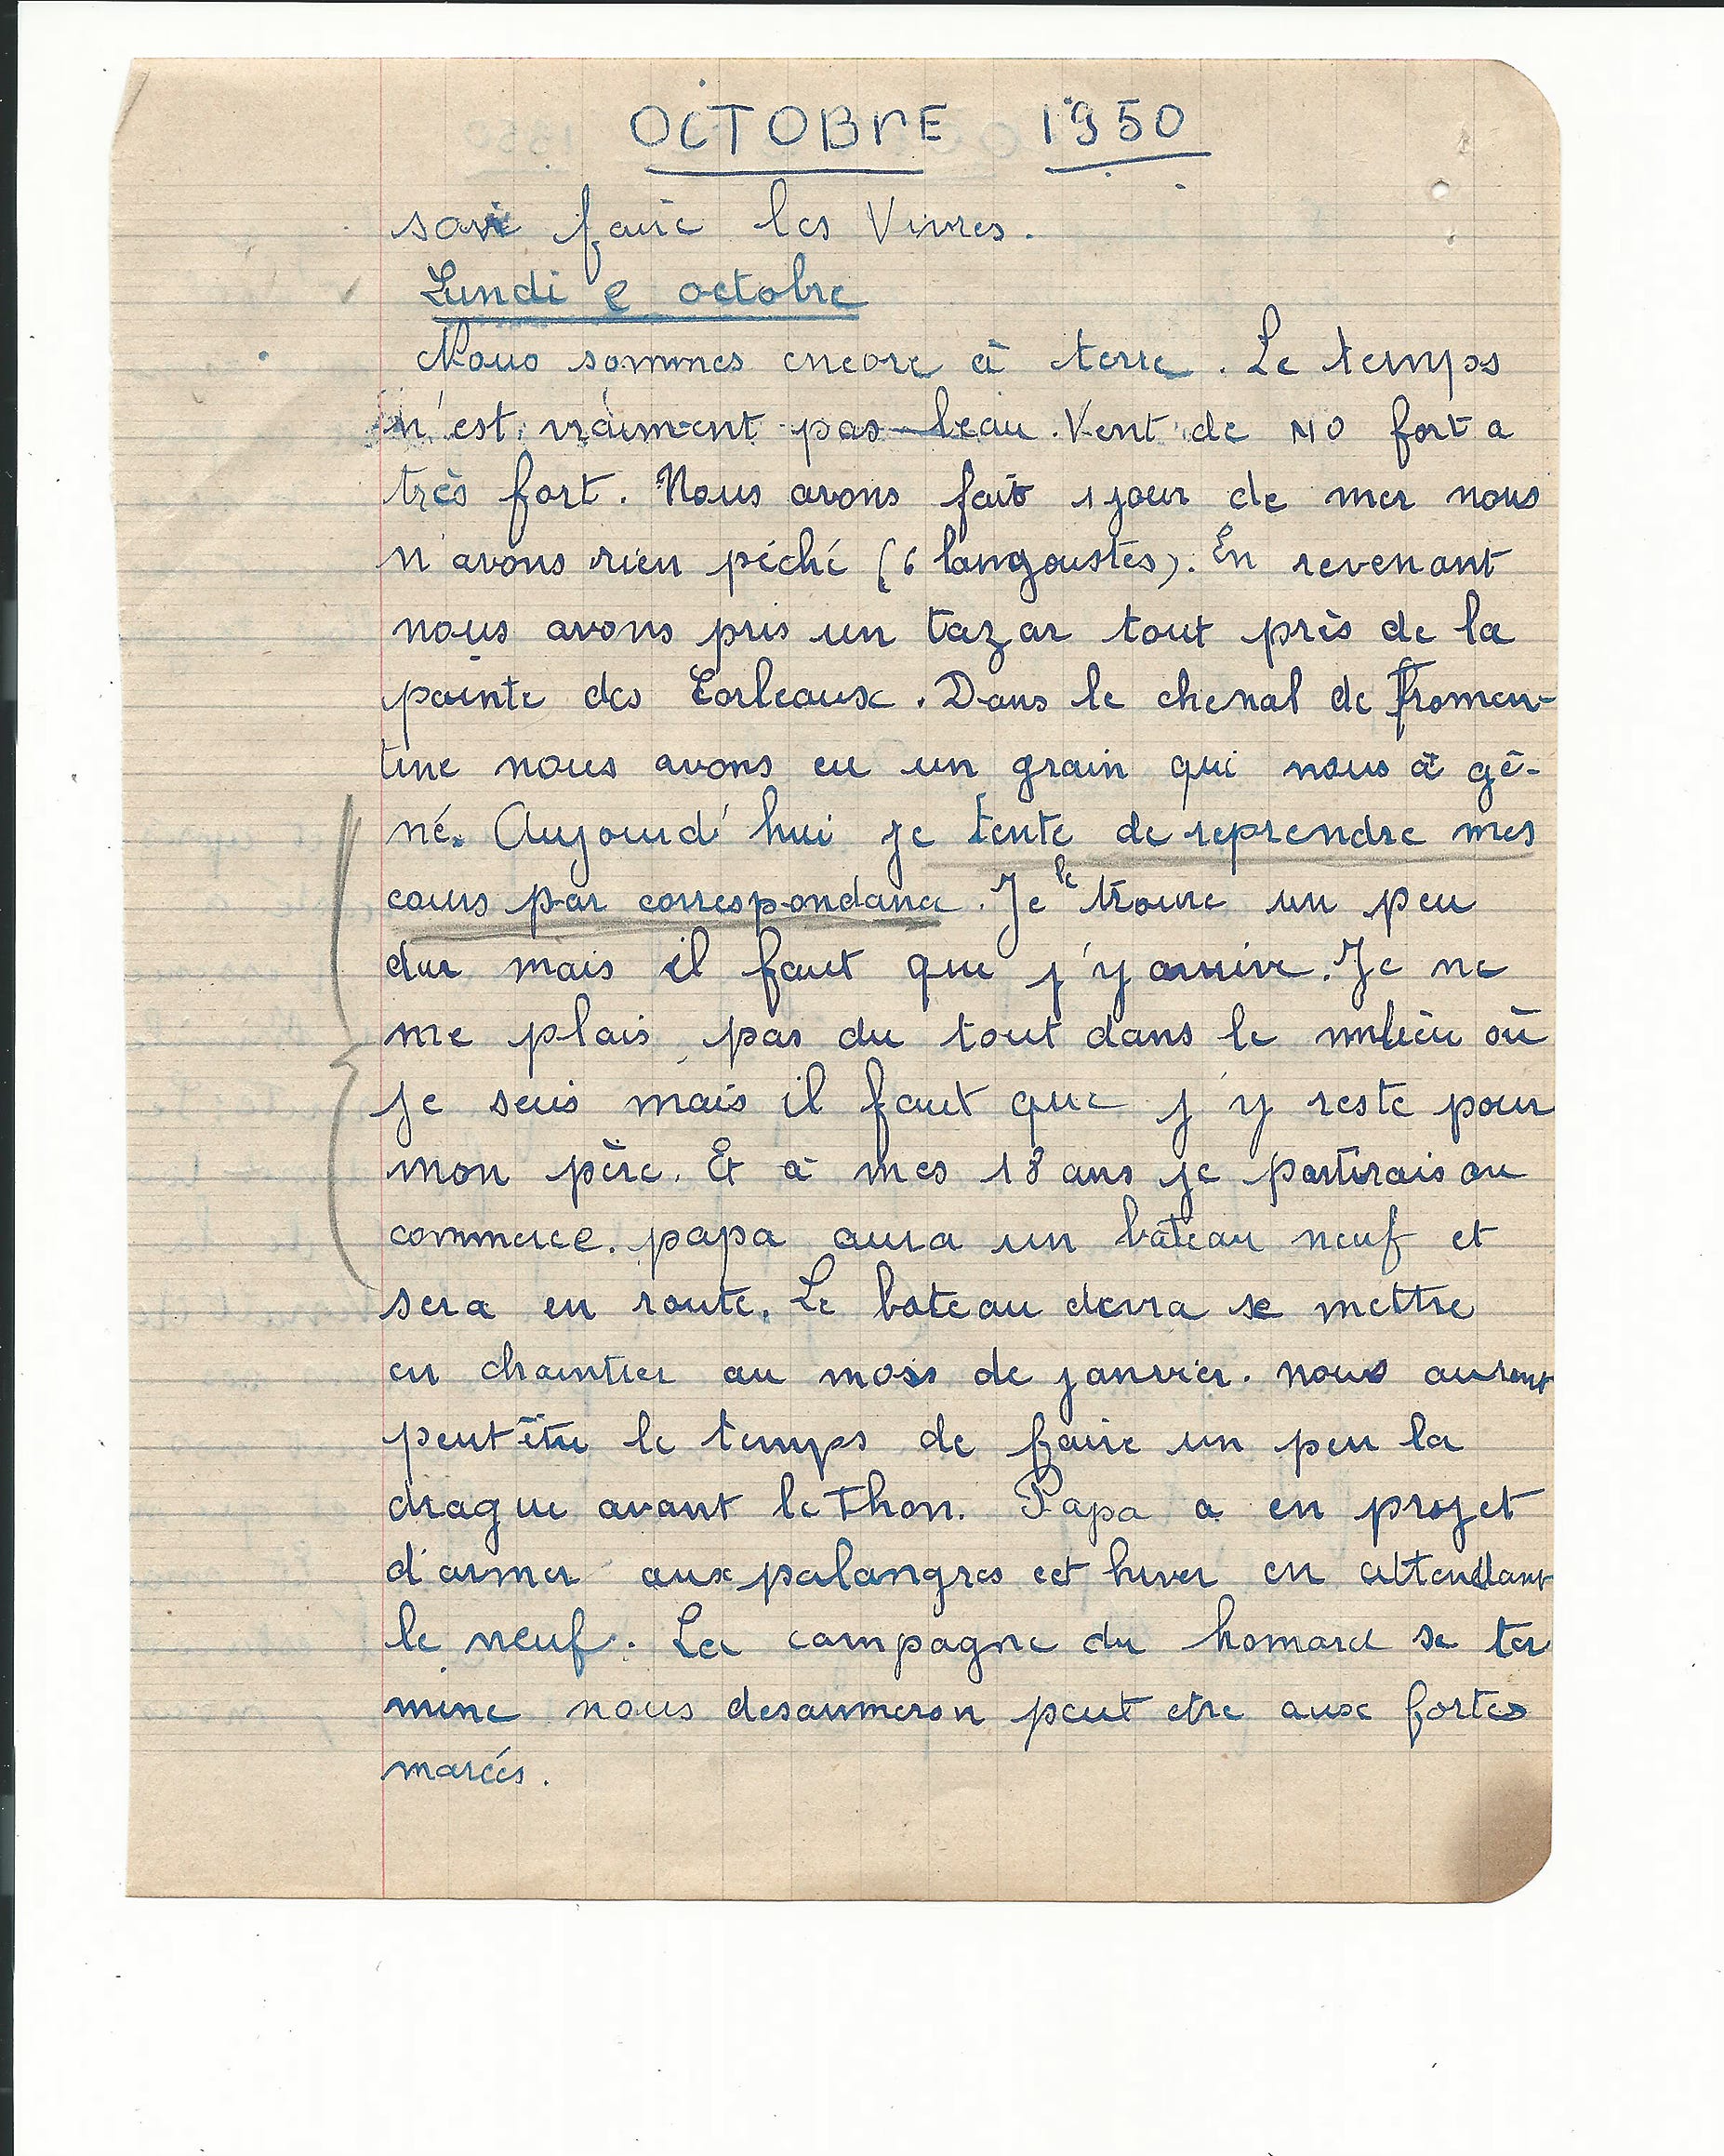 OCTOBRE 1950
faire les Vivres.
Lundi 2 octobre
Nous sommes encore à terre. Le temps
n'est vraiment pas beau. Vent de NO fort a
très fort. Nous avons fait 1 jour de mer nous
n'avons rien péché (6 langoustes). En revenant
nous avons pris un tazar tout près de la
pointe des Corbeaux. Dans le chenal de Fromen-
tine nous avons eu un grain qui nous à gê-
né. Aujourd'hui je tente de reprendre mes
cours par correspondance. Je le trouve un peu
dur mais il faut que j'y arrive. Je ne
me plais pas du tout dans le milieu où
je suis mais il faut que j'y reste pour
mon père. Et à mes 18 ans je partirais au
commerce. papa aura un bateau neuf et
sera en route. Le bateau devra se mettre
en chantier au mois de janvier. nous auront
peut être le temps de faire un peu la
drague avant le Thon. Papa a en projet
d'armer aux palangres cet hiver en attendant
le neuf. La campagne du homard se ter
mine nous desarmeron peut etre aux fortes
marées.